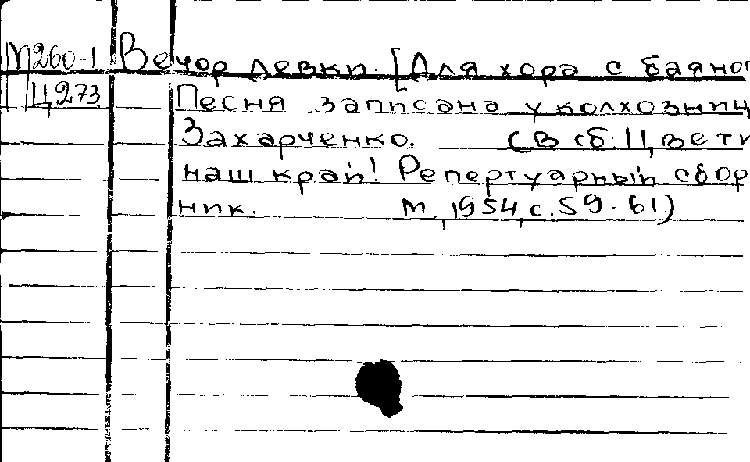 М260-1 Вечор девки. [Для хора с баяно
Ц273 Песня записана у колхозниц
Захарченко. (В сб. Цвети
наш край! Репертуарный сбор
ник. М, 1954, с. 59-61)